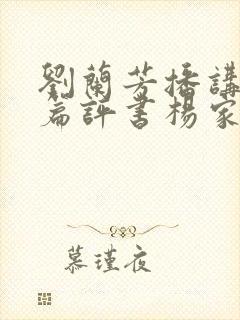 劉蘭芳播講
篇評書楊家
慕瑾夜